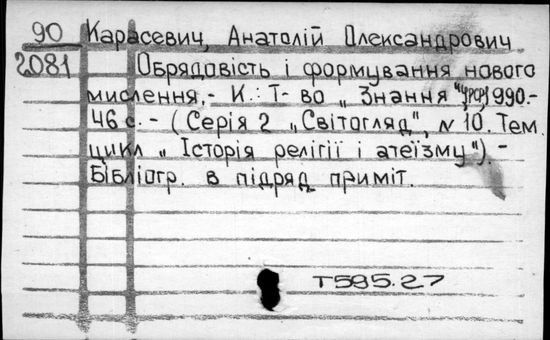 90 Карасевич, Анатолій Олександрович
2081 Обрядовість і формування нового
мислення.- К.: Т-во „Знання" УРСР, 1990.-
46 с. - (Серія 2 „Світогляд", № 10. Тем.
цикл „Історія релігії і атеїзму"). -
Бібліогр. в підряд. приміт.
Т595.27